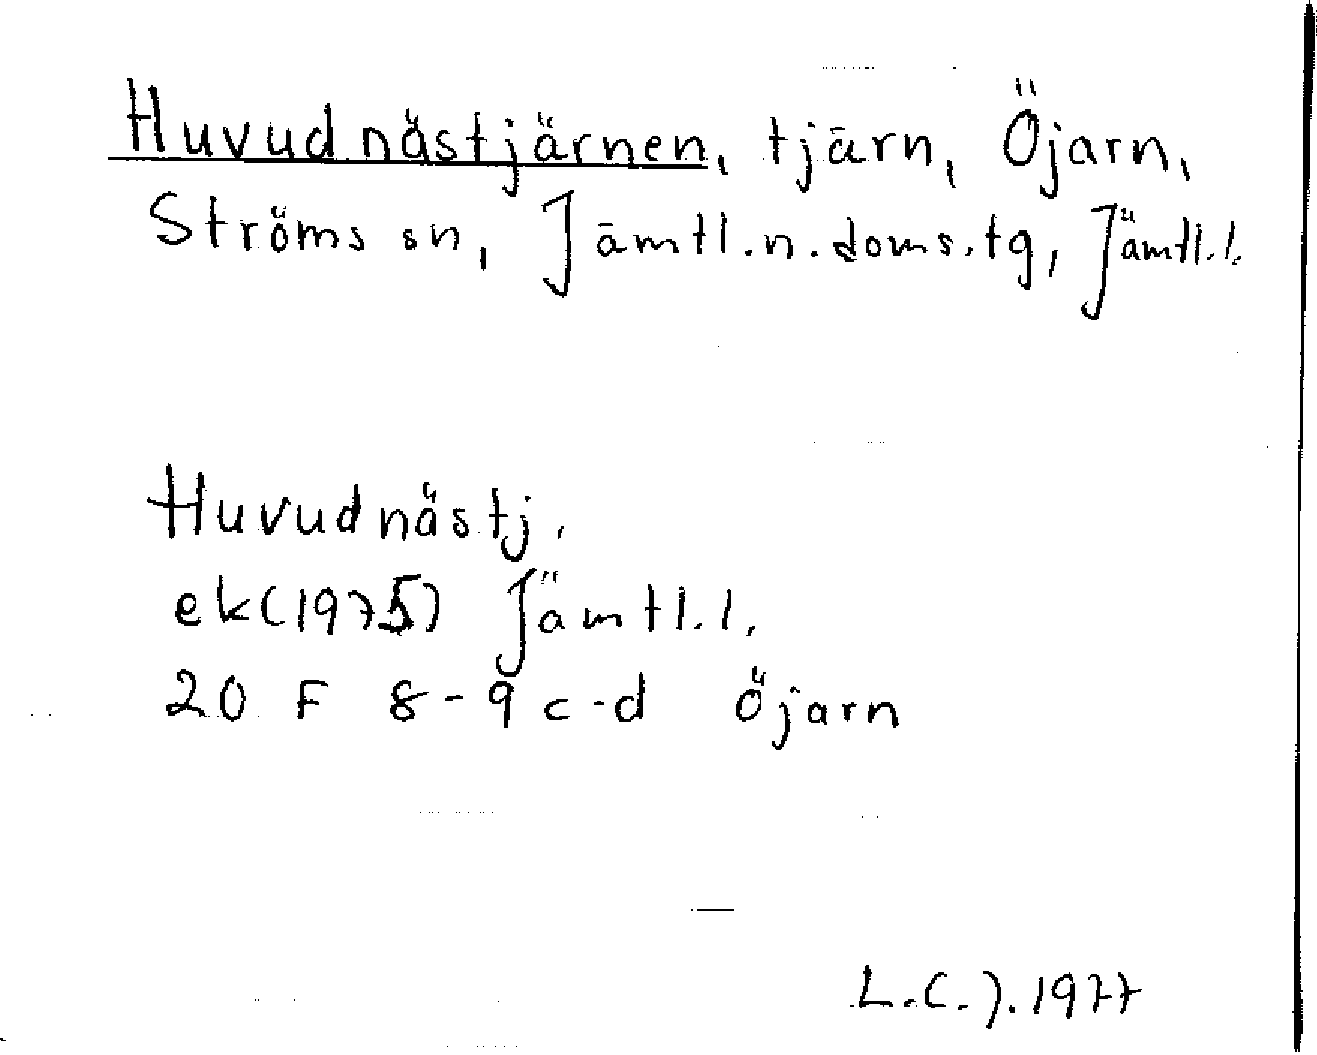 Huvudnästjärnen, tjärn, Öjarn,
Ströms sn, Jämtl.n.doms.tg, Jämtl.l.
Huvudnästj.
ek(1975) Jämtl.l.
20 F 8-9 c-d Öjarn
L.C.J.1977